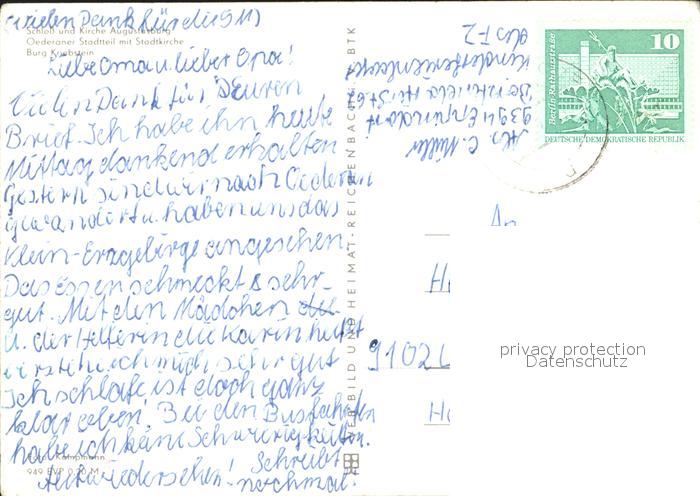 (Vielen Dank für die 5 M)
Schloß und Kirche Augustusburg
Oederaner Stadtteil mit Stadtkirche
Burg Kriebstein
Liebe Oma u. lieber Opa!
Vielen Dank für Deuren
Brief. Ich habe ihn heute
Mittag dankend erhalten
Gestern sind wir nach Oederan
gewandert u. haben uns das
Klein-Erzgebirge angesehen.
Das Essen schmeckt sehr
gut. Mit den Mädchen
u. der Helferin die Karin heißt
verstehe ich mich sehr gut
Ich schlafe ist doch ganz
klar oben! Bei den Busfahrten
habe ich keine Schwierigkeiten.
Schreibt
Aufwiedersehen! nochmal!
Kampmann
949 EVP 0,20 M
BILD UND HEIMAT REICHENBACH BTK
Abs. C. Müller
9394 Erpendorf
Kinderferienlager
des FZ
Berlin-Rathausstraße
10
DEUTSCHE DEMOKRATISCHE REPUBLIK
An
H
9102
H
privacy protection
Datenschutz